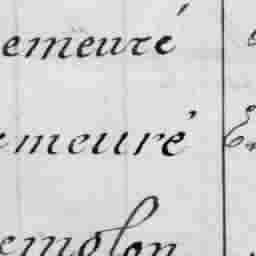 emeuré
meuré
emolon